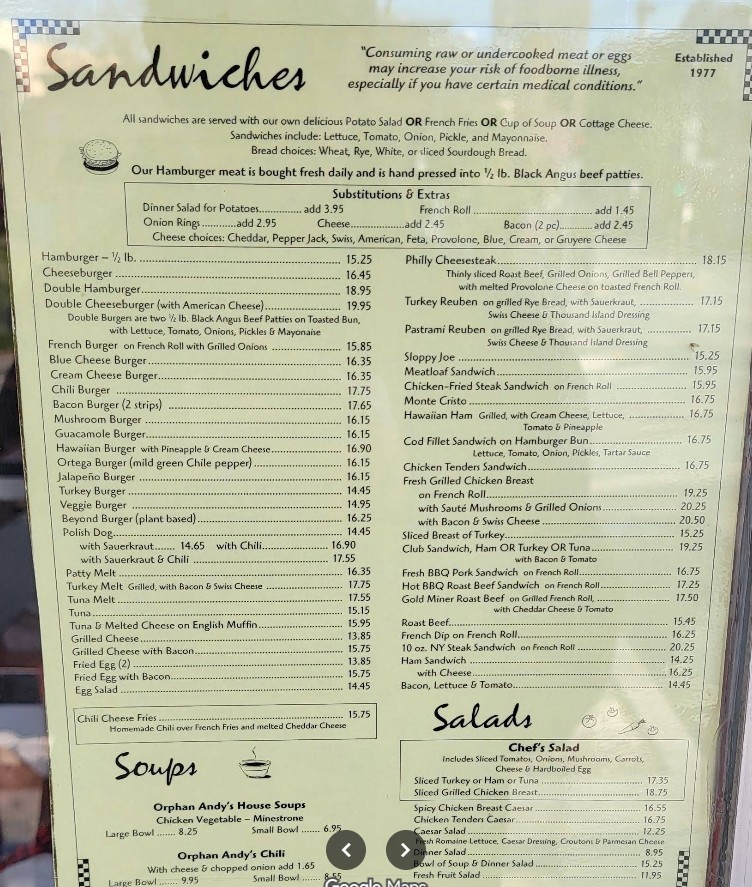 Sandwiches
"Consuming raw or undercooked meat or eggs
may increase your risk of foodborne illness,
especially if you have certain medical conditions."
Established
1977
All sandwiches are served with our own delicious Potato Salad OR French Fries OR Cup of Soup OR Cottage Cheese.
Sandwiches include: Lettuce, Tomato, Onion, Pickle, and Mayonnaise.
Bread choices: Wheat, Rye, White, or sliced Sourdough Bread.
Our Hamburger meat is bought fresh daily and is hand pressed into ½ lb. Black Angus beef patties.
Substitutions & Extras
Dinner Salad for Potatoes.............. add 3.95 French Roll .......................................... add 1.45
Onion Rings ............add 2.95 Cheese........................add 2.45 Bacon (2 pc)...........add 2.45
Cheese choices: Cheddar, Pepper Jack, Swiss, American, Feta, Provolone, Blue, Cream, or Gruyere Cheese
Hamburger – ½ lb. ........ 15.25
Cheeseburger ........ 16.45
Double Hamburger........ 18.95
Double Cheeseburger (with American Cheese)........ 19.95
Double Burgers are two ½ lb. Black Angus Beef Patties on Toasted Bun,
with Lettuce, Tomato, Onions, Pickles & Mayonaise
French Burger on French Roll with Grilled Onions ........ 15.85
Blue Cheese Burger........ 16.35
Cream Cheese Burger........ 16.35
Chili Burger ........ 17.75
Bacon Burger (2 strips) ........ 17.65
Mushroom Burger ........ 16.15
Guacamole Burger........ 16.15
Hawaiian Burger with Pineapple & Cream Cheese........ 16.90
Ortega Burger (mild green Chile pepper)........ 16.15
Jalapeño Burger ........ 16.15
Turkey Burger ........ 14.45
Veggie Burger ........ 14.95
Beyond Burger (plant based)........ 16.25
Polish Dog........ 14.45
with Sauerkraut....... 14.65 with Chili........ 16.90
with Sauerkraut & Chili ........ 17.55
Patty Melt ........ 16.35
Turkey Melt Grilled, with Bacon & Swiss Cheese ........ 17.75
Tuna Melt........ 17.55
Tuna........ 15.15
Tuna & Melted Cheese on English Muffin........ 15.95
Grilled Cheese........ 13.85
Grilled Cheese with Bacon........ 15.75
Fried Egg (2) ........ 13.85
Fried Egg with Bacon........ 15.75
Egg Salad ........ 14.45
Chili Cheese Fries ........ 15.75
Homemade Chili over French Fries and melted Cheddar Cheese
Soups
Orphan Andy's House Soups
Chicken Vegetable – Minestrone
Large Bowl ...... 8.25 Small Bowl ....... 6.95
Orphan Andy's Chili
With cheese & chopped onion add 1.65
Large Bowl ....... 9.95 Small Bowl ....... 8.55
Philly Cheesesteak........ 18.15
Thinly sliced Roast Beef, Grilled Onions, Grilled Bell Peppers,
with melted Provolone Cheese on toasted French Roll.
Turkey Reuben on grilled Rye Bread, with Sauerkraut, ........ 17.15
Swiss Cheese & Thousand Island Dressing
Pastrami Reuben on grilled Rye Bread, with Sauerkraut, ........ 17.15
Swiss Cheese & Thousand Island Dressing
Sloppy Joe ........ 15.25
Meatloaf Sandwich........ 15.95
Chicken-Fried Steak Sandwich on French Roll ........ 15.95
Monte Cristo ........ 16.75
Hawaiian Ham Grilled, with Cream Cheese, Lettuce, ........ 16.75
Tomato & Pineapple
Cod Fillet Sandwich on Hamburger Bun........ 16.75
Lettuce, Tomato, Onion, Pickles, Tartar Sauce
Chicken Tenders Sandwich........ 16.75
Fresh Grilled Chicken Breast
on French Roll........ 19.25
with Sauté Mushrooms & Grilled Onions........ 20.25
with Bacon & Swiss Cheese ........ 20.50
Sliced Breast of Turkey........ 15.25
Club Sandwich, Ham OR Turkey OR Tuna........ 19.25
with Bacon & Tomato
Fresh BBQ Pork Sandwich on French Roll........ 16.75
Hot BBQ Roast Beef Sandwich on French Roll........ 17.25
Gold Miner Roast Beef on Grilled French Roll, ........ 17.50
with Cheddar Cheese & Tomato
Roast Beef........ 15.45
French Dip on French Roll........ 16.25
10 oz. NY Steak Sandwich on French Roll ........ 20.25
Ham Sandwich ........ 14.25
with Cheese........ 16.25
Bacon, Lettuce & Tomato........ 14.45
Salads
Chef's Salad
Includes Sliced Tomatoes, Onions, Mushrooms, Carrots,
Cheese & Hardboiled Egg
Sliced Turkey or Ham or Tuna ........ 17.35
Sliced Grilled Chicken Breast........ 18.75
Spicy Chicken Breast Caesar........ 16.55
Chicken Tenders Caesar........ 16.75
Caesar Salad ........ 12.25
Fresh Romaine Lettuce, Caesar Dressing, Croutons & Parmesan Cheese
Dinner Salad ........ 8.95
Bowl of Soup & Dinner Salad ........ 15.25
Fresh Fruit Salad ........ 11.95
Google Maps